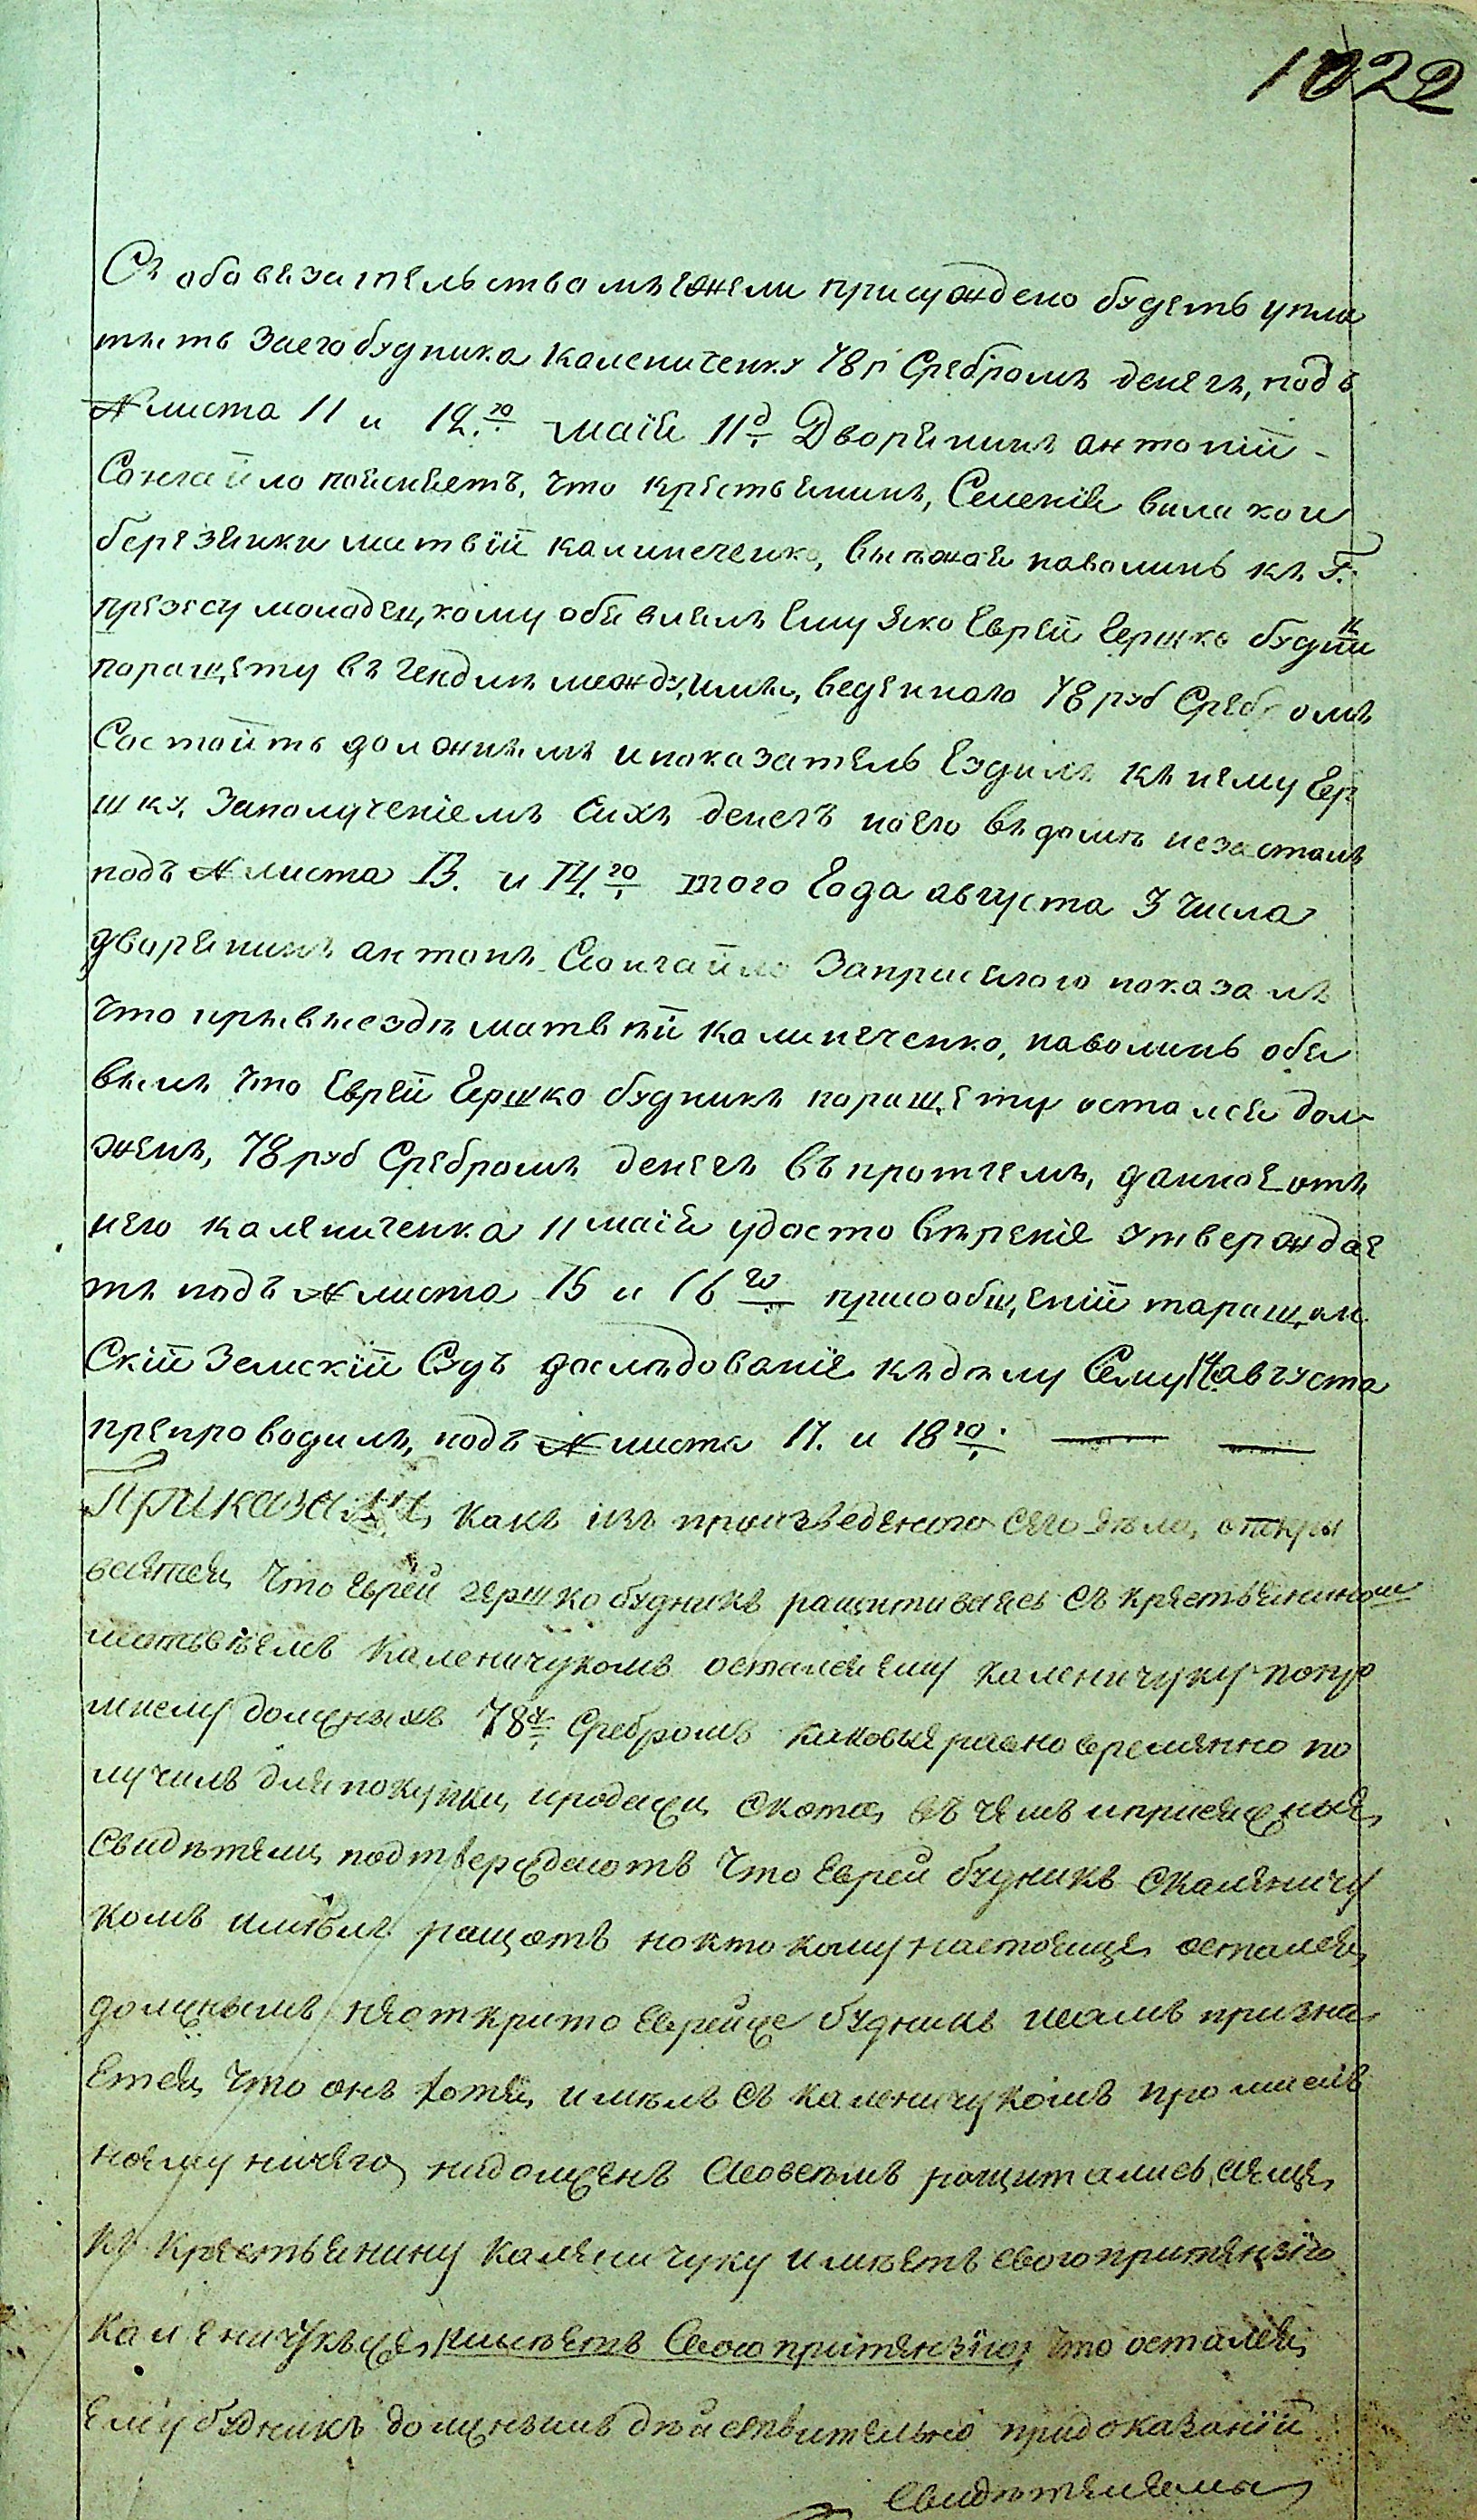 1022
Съ обовезательствомъ ежели присуждено будетъ упла
тить Заего будника Калениченку 78 р Сребромъ денегъ, подъ
№ листа 11 и 12.го маія 11д Дворянинъ антоній
Сонгайло поясняетъ, что крестьянинъ, Селенія вилихои
березянки матвій калениченко, выежая наволинь къ Г.
презесу молодецкому обявлялъ Ему яко Еврей Гершко будник
поращету въ гендлѣ между, ими, веденного 78 руб Сребромъ
Состоитъ должнымъ и показатель Ездилъ къ нему Гер
шку, Заполученіемъ Сихъ денегъ но Его въ домѣ незасталъ
подъ № листа 13. и 14.го того Года августа 3 числа
дворянинъ антонъ Сонгайло Заприсягою показалъ
что привыездѣ матвѣй Калениченко, наволинь обя
вилъ что Еврей Гершко будникъ поращету остался дол
женъ, 78 руб Сребромъ денегъ въпротчемъ, данное отъ
него калениченка 11 маія удостовѣреніе утверждае
тъ подъ № листа 15 и 16го присообщеніи таращан
Скій Земскій Судъ дослѣдованіе къдѣлу Сему 14 августа
препроводилъ, подъ № листа 17. и 18го.
Приказали, Какъ изъ произведеного сего дѣла, откры
вается, Что Еврей гершко будникъ ращитиваясь Съ крестьянином
матвѣемъ Каленичукомъ остался ему каленичуку попро
мислу должнымъ 78 Сребромъ каковыя равновременно по
лучилъ для покупки, ипродажи Скота, въ чемъ иприсяжныя
Свидѣтели, подтверждаютъ Что Еврей будникъ Скаленичу
комъ имѣлъ ращотъ но кто кому настоящее остался,
должнымъ неоткрито Еврейже будникъ исамъ призна
Ется, Что онъ хотя, имѣлъ Съ каленичукомъ промислъ
ноему ничего, недолженъ Асовсѣмъ ращитались, аеще,
къ Крестьянину каленичуку имѣетъ свою притензію
каленичукъже, имѣетъ Свою притензію, Что остался,
Ему будникъ должнымъ дѣйствительно придоказаніи
Свидѣтелями